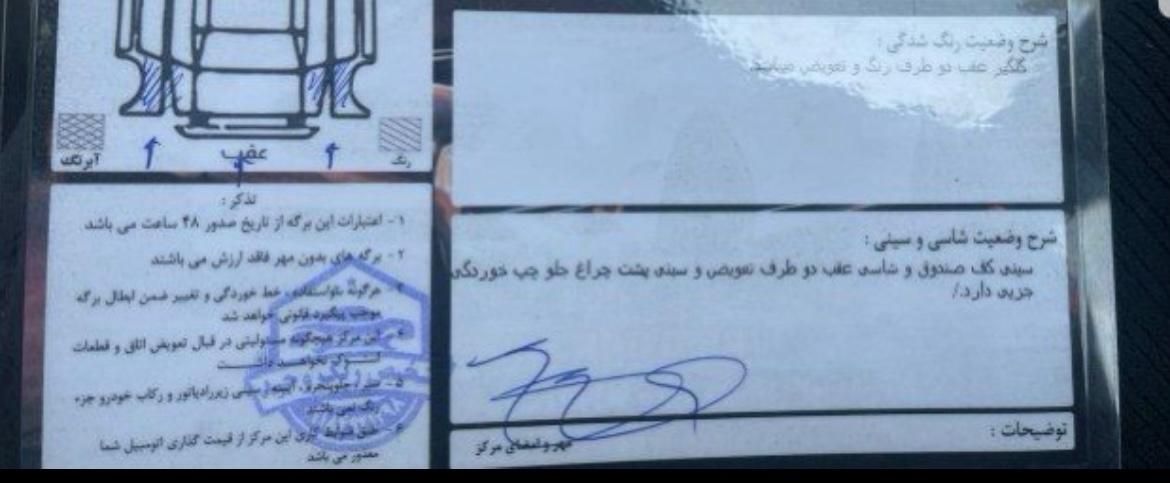 آبرنگ
عقب
رنگ
تذکر :
۱- اعتبارات این برگه از تاریخ صدور ۴۸ ساعت می باشد
۲- برگه های بدون مهر فاقد ارزش می باشند
هرگونه خط خوردگی و تغییر ضمن ابطال برگه
موجب پیگیرد قانونی خواهد شد
این مرکز هیچگونه مسئولیتی در قبال تعویض اتاق و قطعات
نخواهد داشت
۵- زیررادیاتور و رکاب خودرو جزء
رنگ نمی باشند
۶- این مرکز از قیمت گذاری اتومبیل شما
معذور می باشد
شرح وضعیت رنگ شدگی :
گلگیر عقب دو طرف رنگ و تعویض میباشد.
شرح وضعیت شاسی و سینی :
سینی کف صندوق و شاسی عقب دو طرف تعویض و سینی پشت چراغ جلو چپ خوردگی
جزیی دارد./
توضیحات :
مهر و امضای مرکز